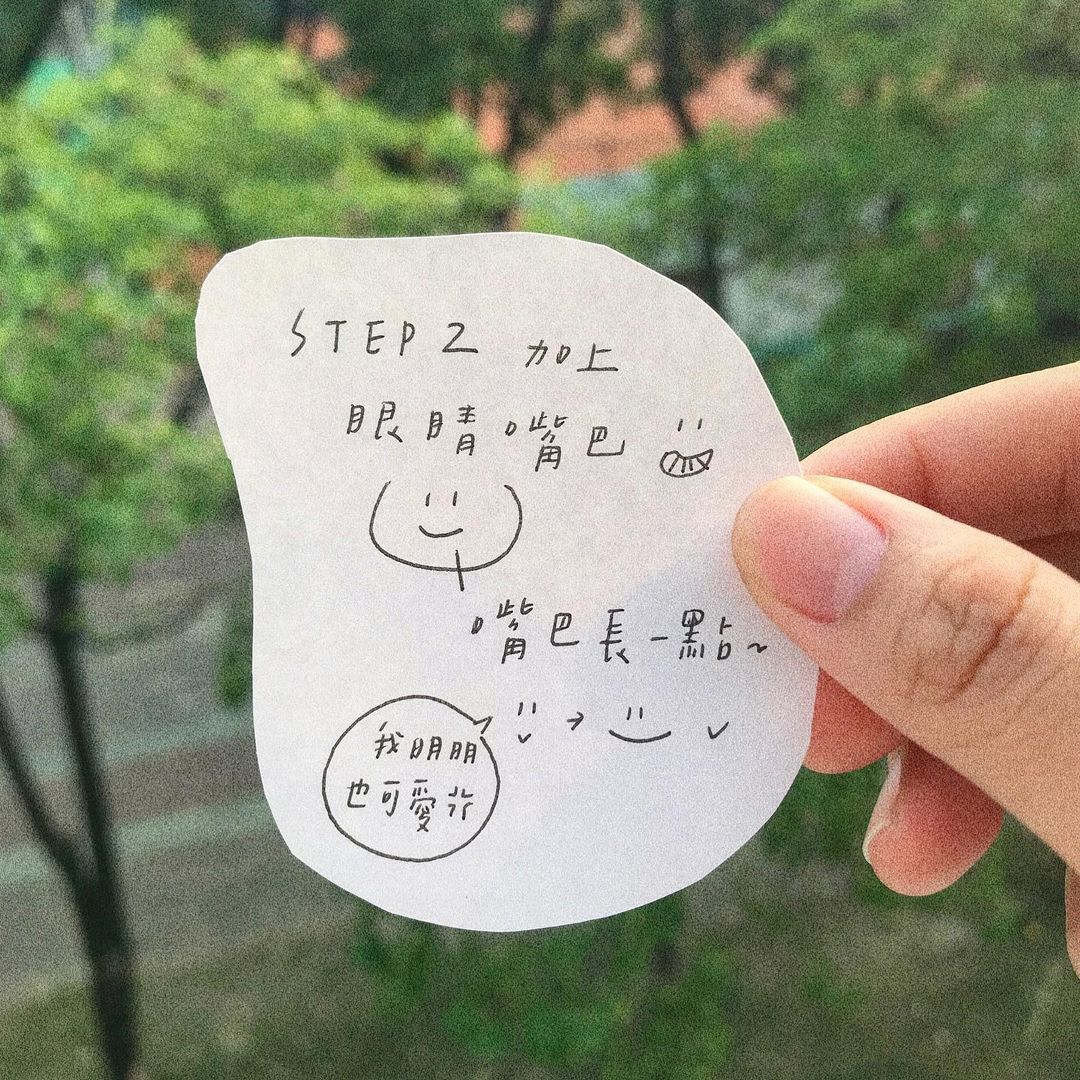 STEP 2 加上
眼睛嘴巴
嘴巴長一點~
我明明
也可愛ㄘ